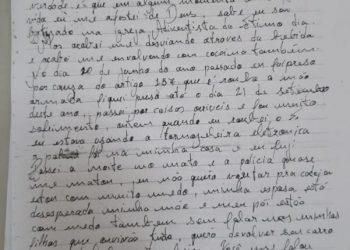 verdade é que em algum momento da
vida eu me afastei de Deus, sabe eu sou
batizado na igreja Adventista do sétimo dia
acabei me desviando atraves da bebida
e acabei me envolvendo com cocaína também.
No dia 20 de junho do ano passado eu fui preso
por causa do artigo 157 que é roubo a mão
armada fiquei preso até o dia 21 de setembro
deste ano, passei por coisas orriveis e foi muito
sofrimento, ontem quando eu roubei, o
eu estava usando a tornozeleira eletronica
na minha casa e eu fuji
Passei a noite no mato e a policia quase
me matou, eu não queria voltar pra cadeia
estou com muito medo, minha esposa está
desesperada minha mãe e meu pai estão
com medo também sem falar nas minhas
filhas que ouviram tudo, quero devolver seu carro